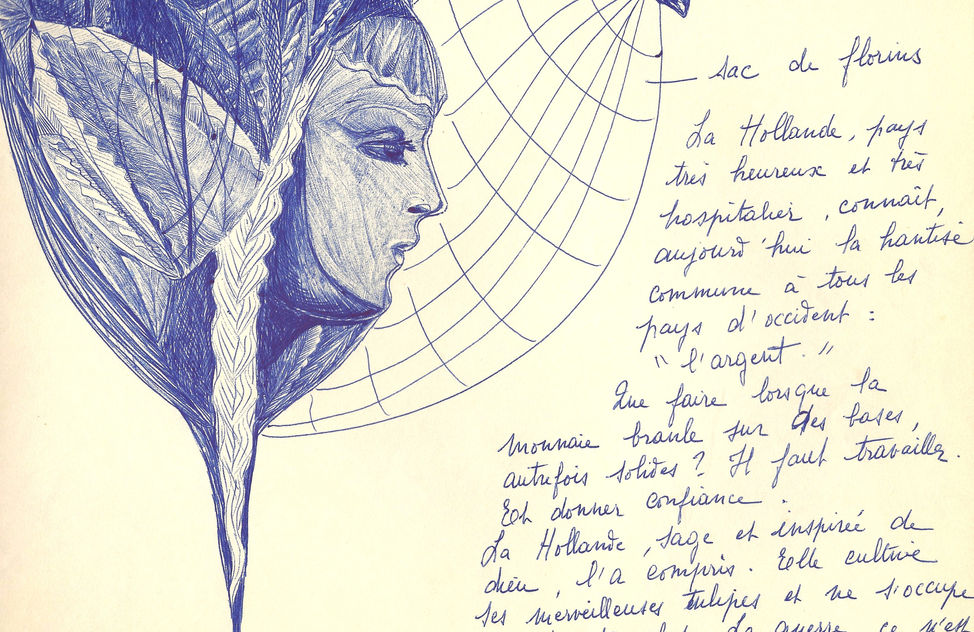 sac de florins
La Hollande, pays
très heureux et très
hospitalier, connaît,
aujourd'hui la hantise
commune à tous les
pays d'occident :
"l'argent."
Que faire lorsque la
monnaie branle sur des bases,
autrefois solides ? Il faut travailler.
Et donner confiance.
La Hollande, sage et inspirée de
dieu, l'a compris. Elle cultive
ses merveilleuses tulipes et ne s'occupe
La guerre, ce n'est